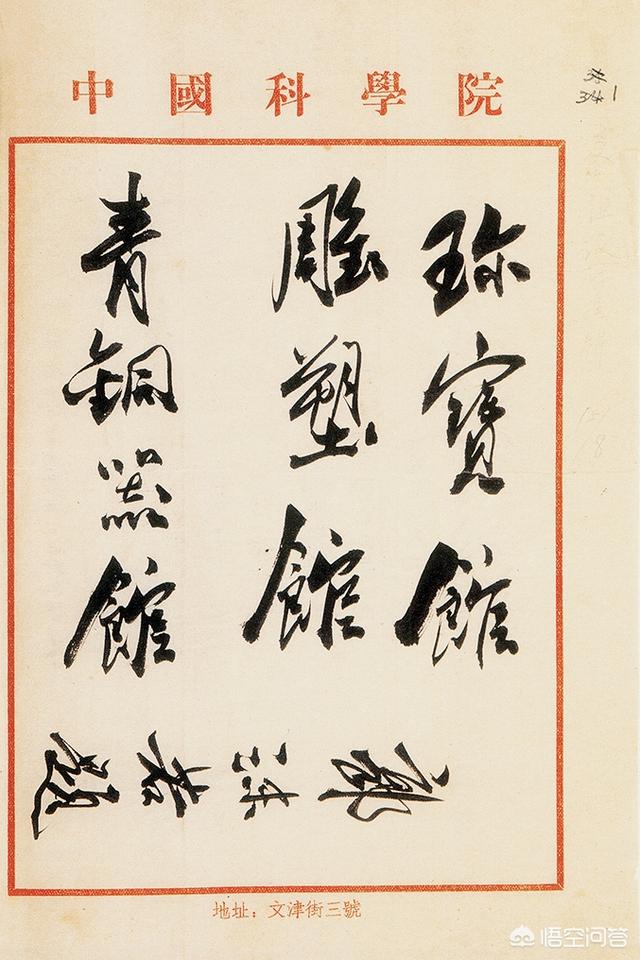 中國科學院
珍寶館
雕塑館
青銅器館
郭沫若題
地址：文津街三號
悟空问答